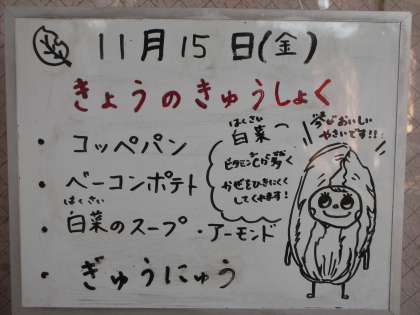 11月15日(金)
きょうのきゅうしょく
・コッペパン
・ベーコンポテト
はくさい
・白菜のスープ ・アーモンド
・ぎゅうにゅう
はくさい
白菜へ
ビタミンCが多く
かぜをひきにくく
してくれます!
冬がおいしい
やさいです!!